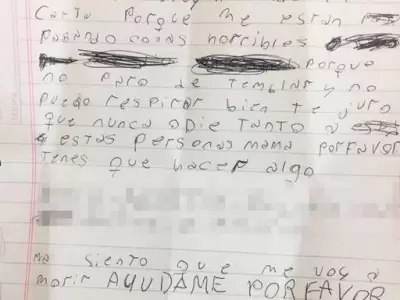 Carta porque me estan
pasando cosas horribles
porque
no paro de temblar y no
puedo respirar bien te juro
que nunca odie tanto a
estas personas mama porfavor
tenes que hacer algo
me siento que me voy a
morir AYUDAME PORFAVOR